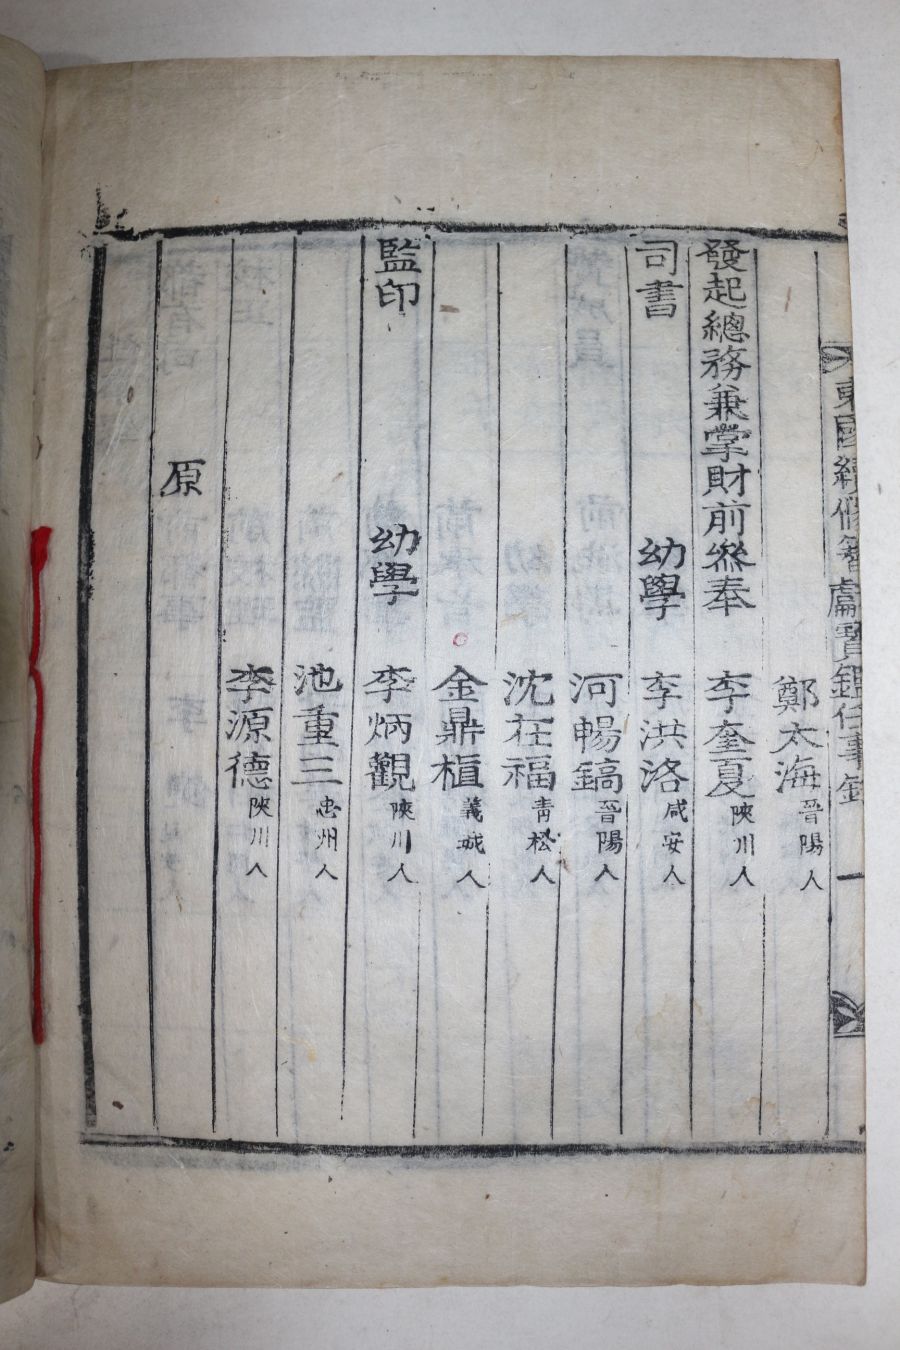 東國續修簪獻寶鑑任事錄 一
鄭太海 晉陽人
發起總務兼掌財前參奉 李奎夏 陜川人
司書 幼學 李洪洛 咸安人
河暢鎬 晉陽人
沈在福 青松人
金鼎植 義城人
監印 幼學 李炳觀 陜川人
池重三 忠州人
李源德 陜川人
原